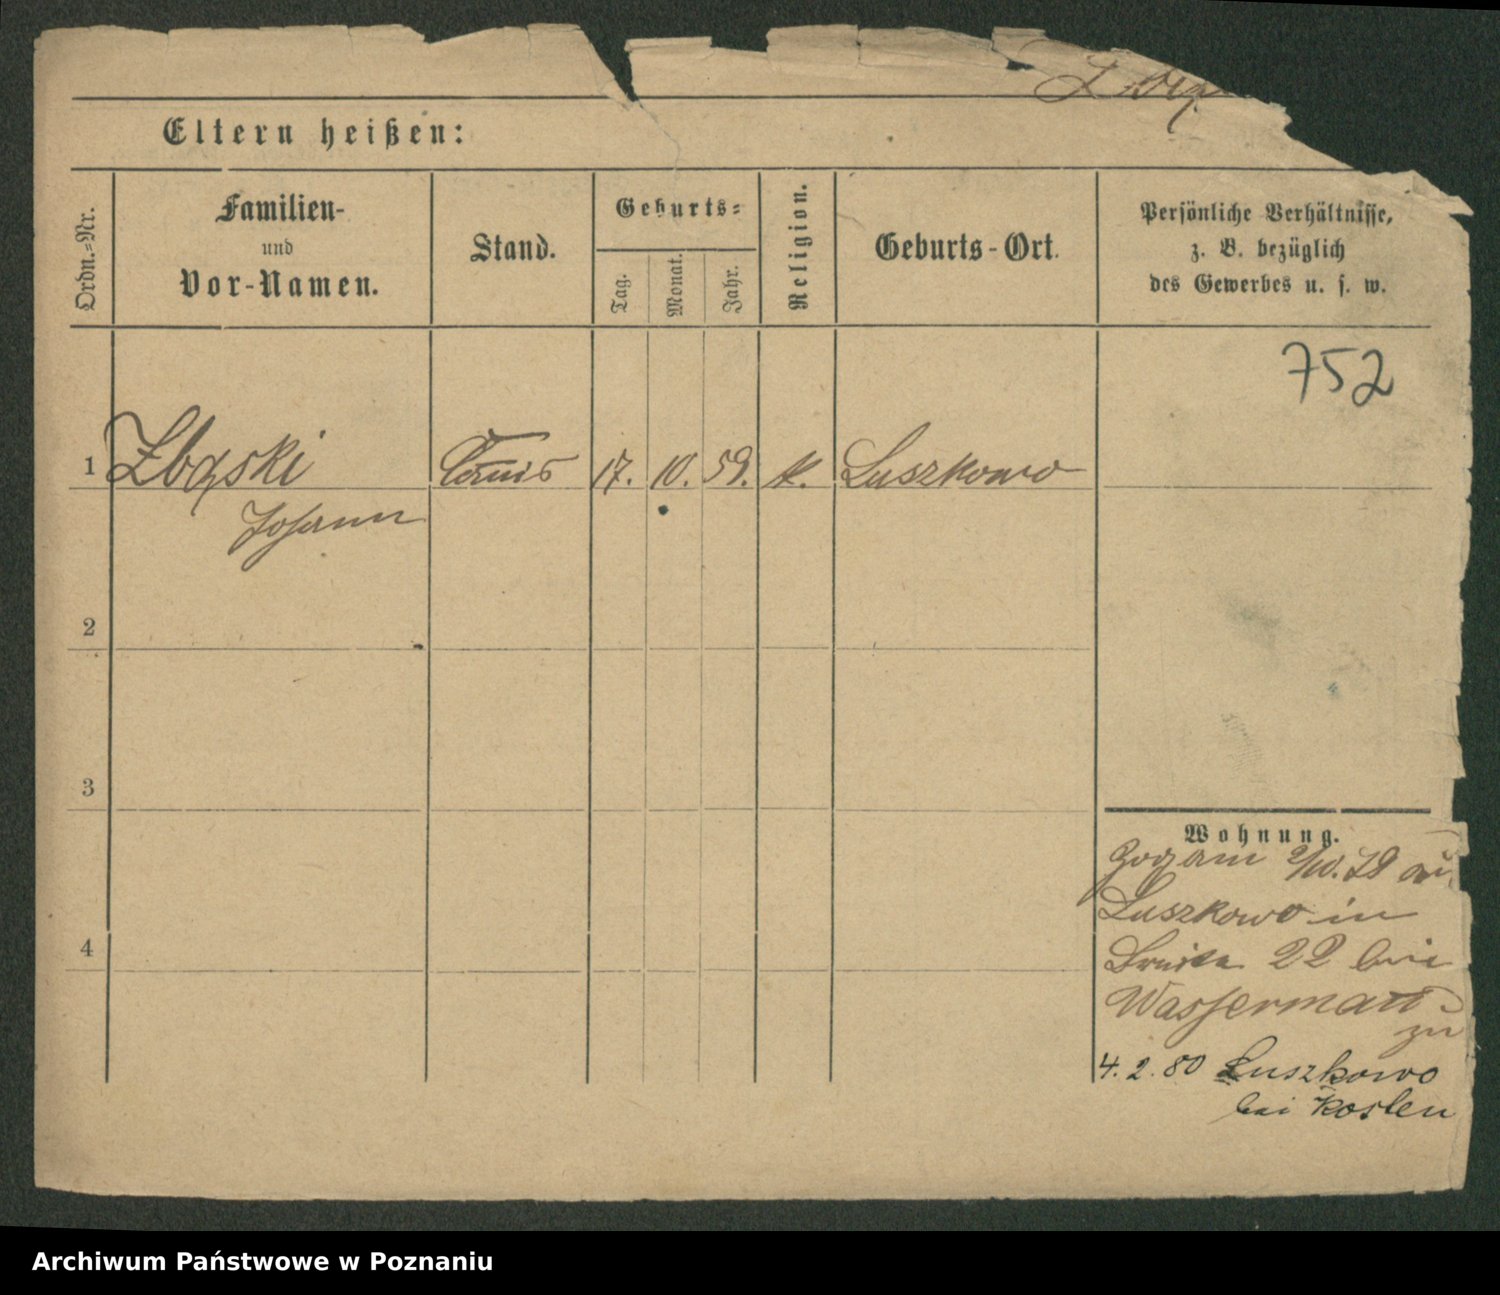 Eltern heißen:
Ordn.-Nr.
Familien-
und
Vor-Namen.
Stand.
Geburts-
Tag.
Monat.
Jahr.
Religion.
Geburts-Ort.
Persönliche Verhältnisse,
z. B. bezüglich
des Gewerbes u. s. w.
752
1 Zbąski 17. 10. 59. k. Luszkowo
Johann
2
3
Wohnung.
Zog am 2/10. 79 aus
Luszkowo in
22 bei
4
zu
4. 2. 80 Luszkowo
bei Kosten
Archiwum Państwowe w Poznaniu